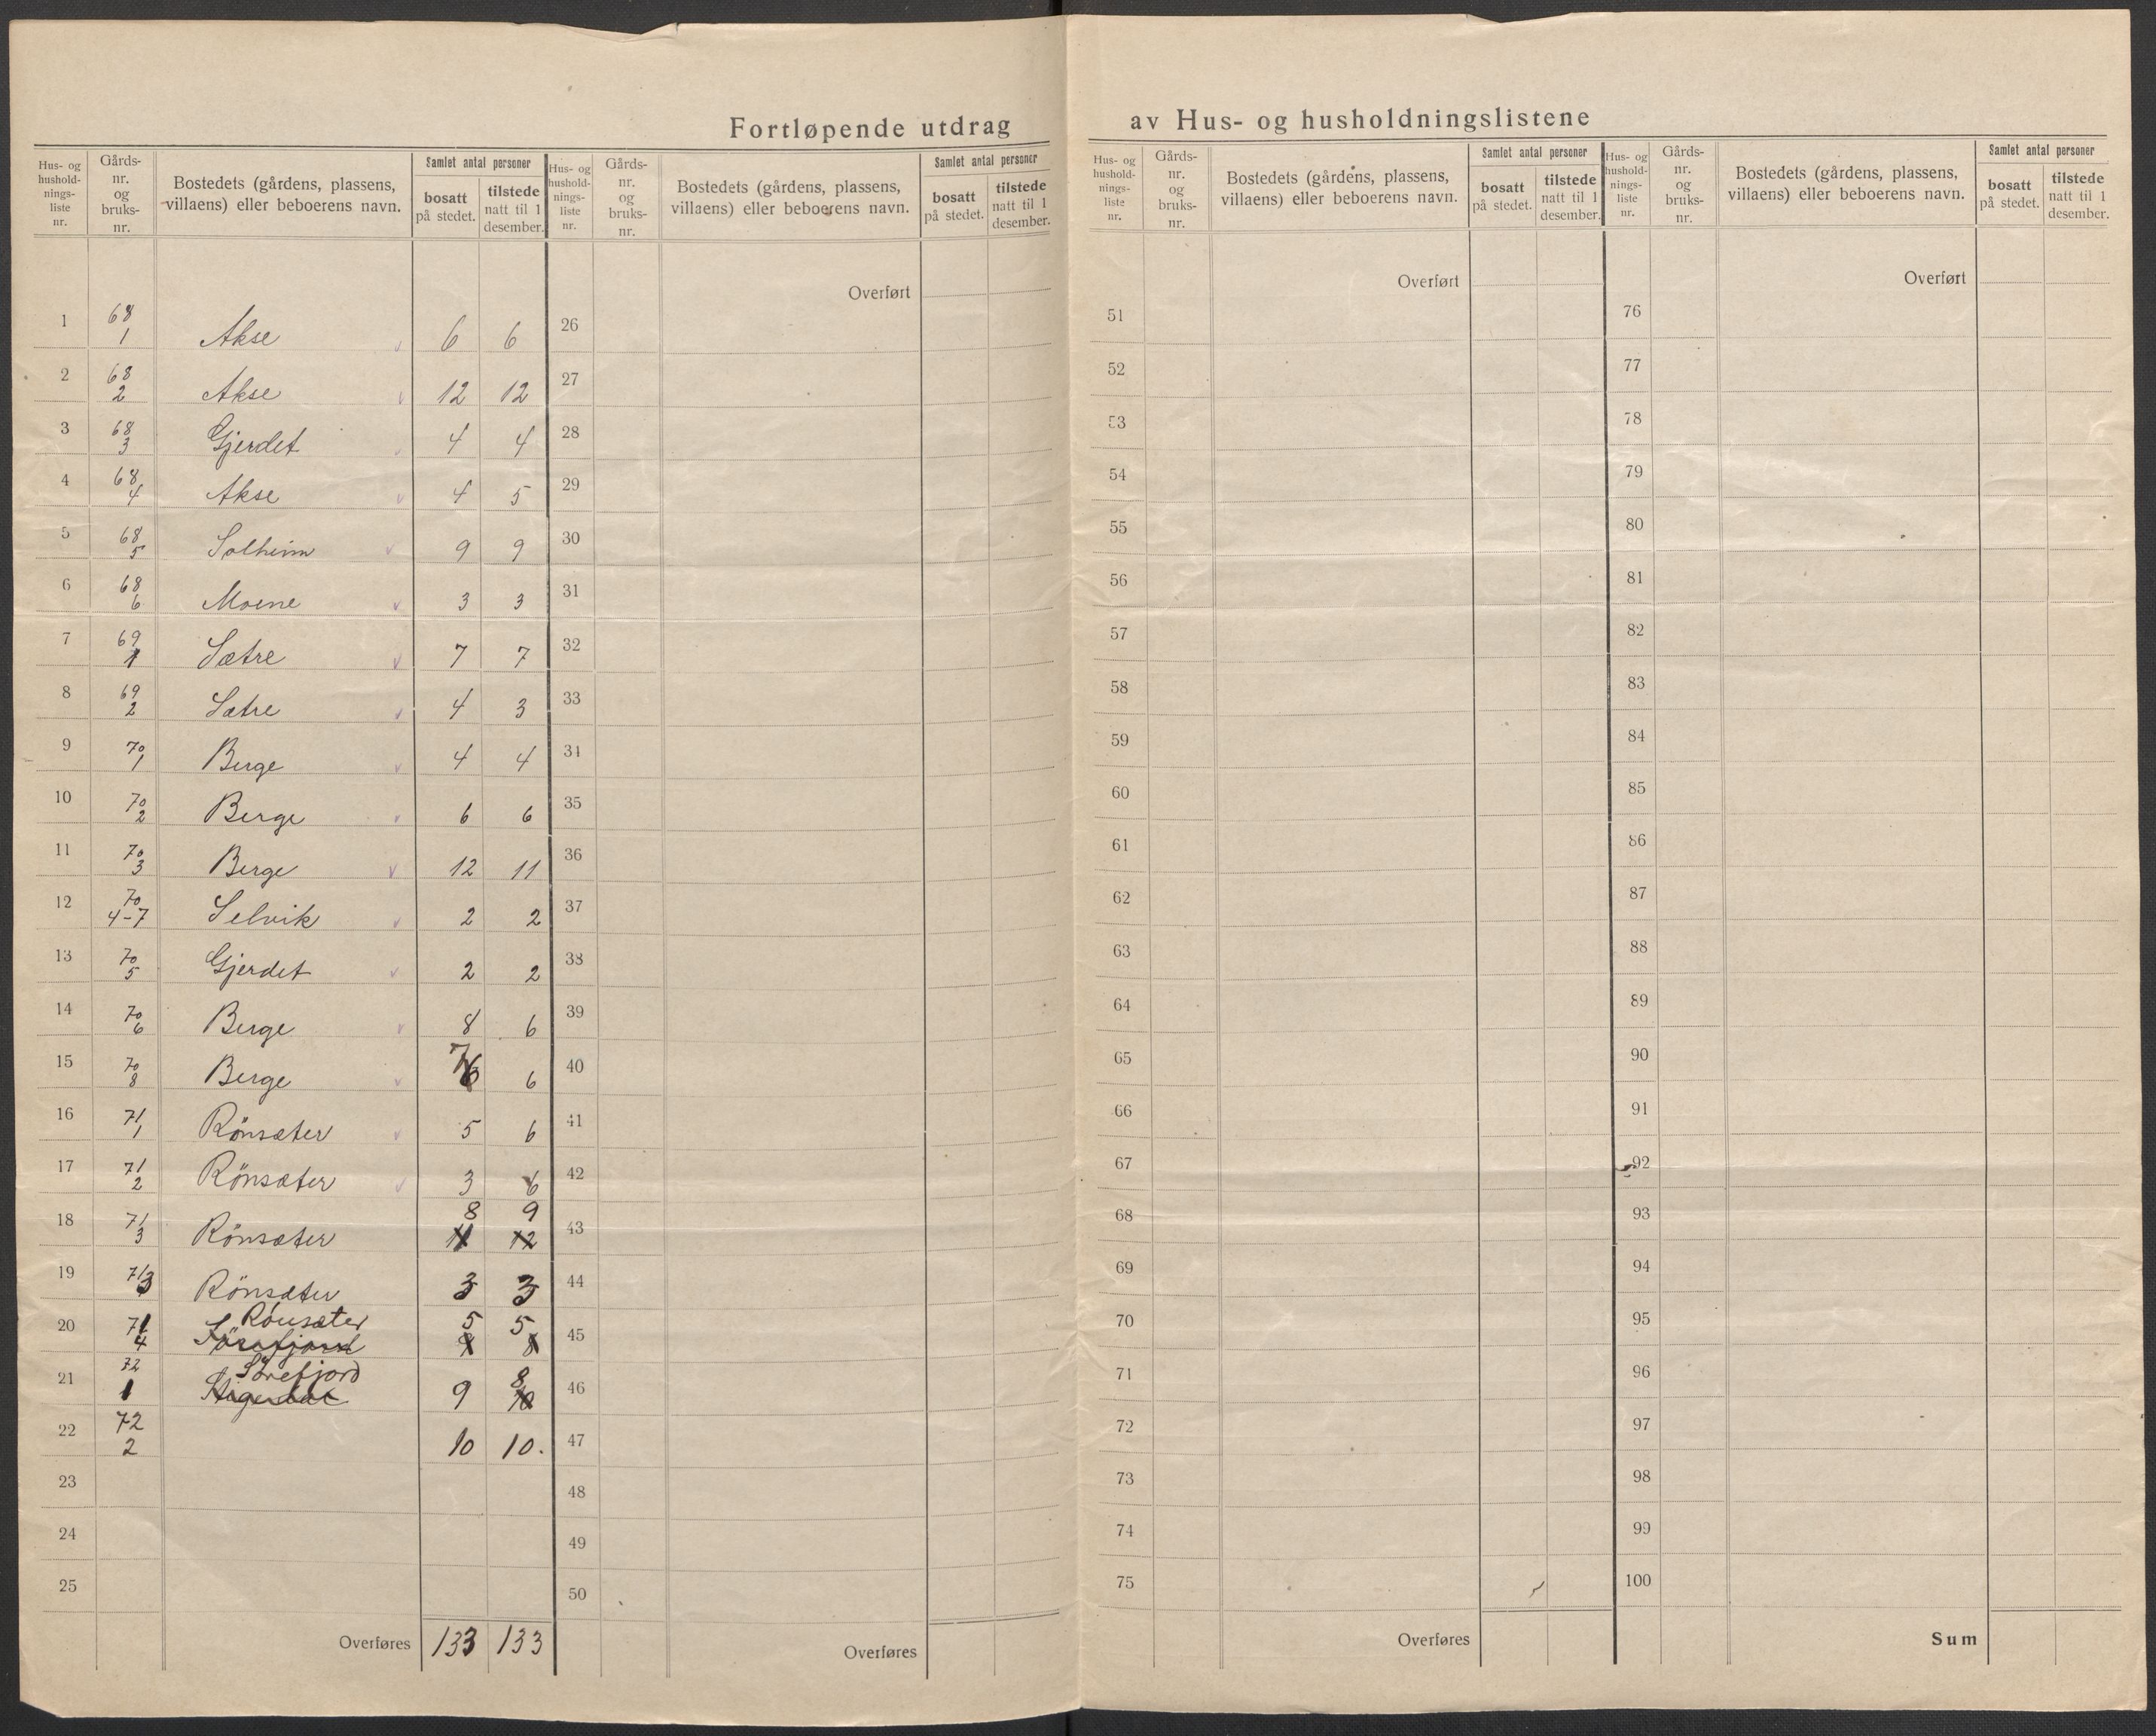 Fortløpende utdrag av Hus- og husholdningslistene
Hus- og hushold-nings-liste nr. Gårds-nr. og bruks-nr. Bostedets (gårdens, plassens, villaens) eller beboerens navn. Samlet antal personer bosatt på stedet. tilstede natt til 1 desember.
Hus- og hushold-nings-liste nr. Gårds-nr. og bruks-nr. Bostedets (gårdens, plassens, villaens) eller beboerens navn. Samlet antal personer bosatt på stedet. tilstede natt til 1 desember.
Hus- og hushold-nings-liste nr. Gårds-nr. og bruks-nr. Bostedets (gårdens, plassens, villaens) eller beboerens navn. Samlet antal personer bosatt på stedet. tilstede natt til 1 desember.
Hus- og hushold-nings-liste nr. Gårds-nr. og bruks-nr. Bostedets (gårdens, plassens, villaens) eller beboerens navn. Samlet antal personer bosatt på stedet. tilstede natt til 1 desember.
1 68 1 Akse 6 6
2 68 2 Akse 12 12
3 68 3 Gjerdet 4 4
4 68 4 Akse 4 5
5 68 5 Solheim 9 9
6 68 6 Moene 3 3
7 69 1 Sætre 7 7
8 69 2 Sætre 4 3
9 70 1 Berge 4 4
10 70 2 Berge 6 6
11 70 3 Berge 12 11
12 70 4-7 Selvik 2 2
13 70 5 Gjerdet 2 2
14 70 6 Berge 8 6
15 70 8 Berge 7 6
16 71 1 Rönsæter 5 6
17 71 2 Rönsæter 3 6
8 9
18 71 3 Rönsæter 11 12
19 71 3 Rönsæter 3 3
Rönsæter 5 5
20 71 4 Sörefjord
72 Sörefjord 8
21 1 9 10
22 72 2 10 10.
23
24
25
Overføres 133 133
Overført
26
27
28
29
30
31
32
33
34
35
36
37
38
39
40
41
42
43
44
45
46
47
48
49
50
Overføres
Overført
51
52
53
54
55
56
57
58
59
60
61
62
63
64
65
66
67
68
69
70
71
72
73
74
75
Overføres
Overført
76
77
78
79
80
81
82
83
84
85
86
87
88
89
90
91
92
93
94
95
96
97
98
99
100
Sum